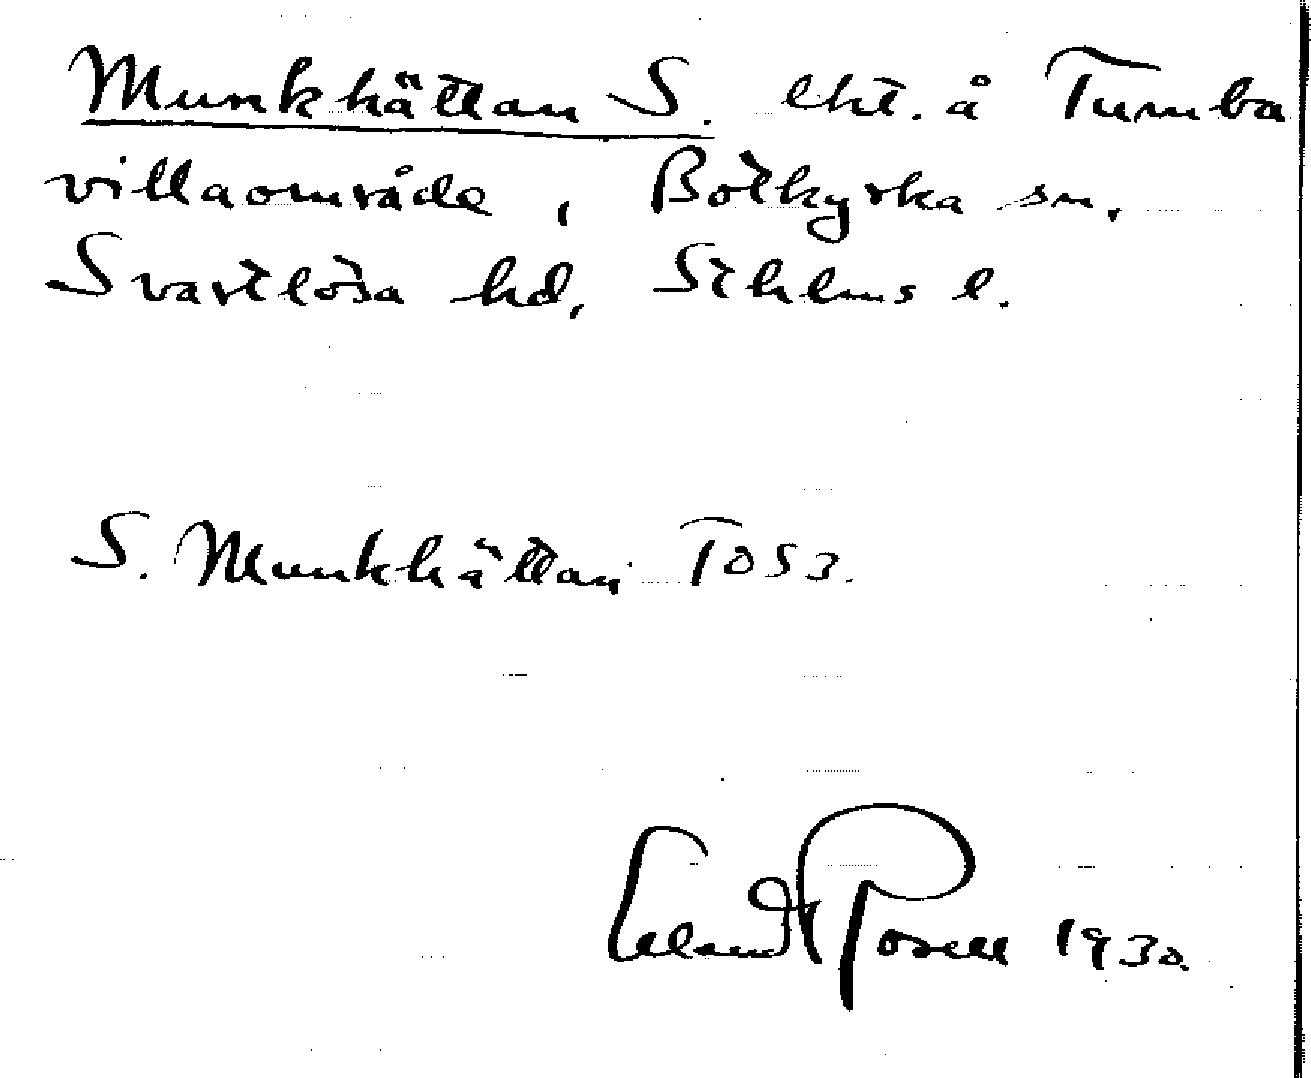 Munkhättan S. lht. å Tumba
villaområde, Botkyrka sn,
Svartlösa hd, Sthlms l.
S. Munkhättan TOS3.
Erland Rosell 1930.